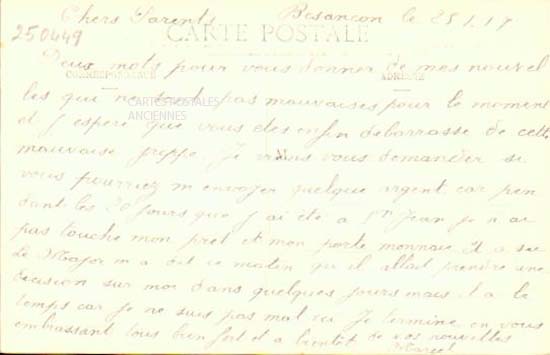 Chers Parents Besançon le 25.1.17
250449
CARTE POSTALE
Deux mots pour vous donner de mes nouvel
CORRESPONDANCE ADRESSE
les qui ne sont pas mauvaises pour le moment
CARTES POSTALES
ANCIENNES
et j'espère que vous etes enfin debarrassé de cette
mauvaise grippe. Je viens vous demander si
vous pourriez m envoyer quelque argent car pen
dant les 20 jours que j ai été a St Jean je n ai
pas touché mon pret et mon porte monnaie
Le Major m a dit ce matin qu il allait prendre une
decision sur moi dans quelques jours mais il a le
temps car je ne suis pas mal ici Je termine en vous
embrassant tous bien fort et a bientôt de vos nouvelles
Marcel